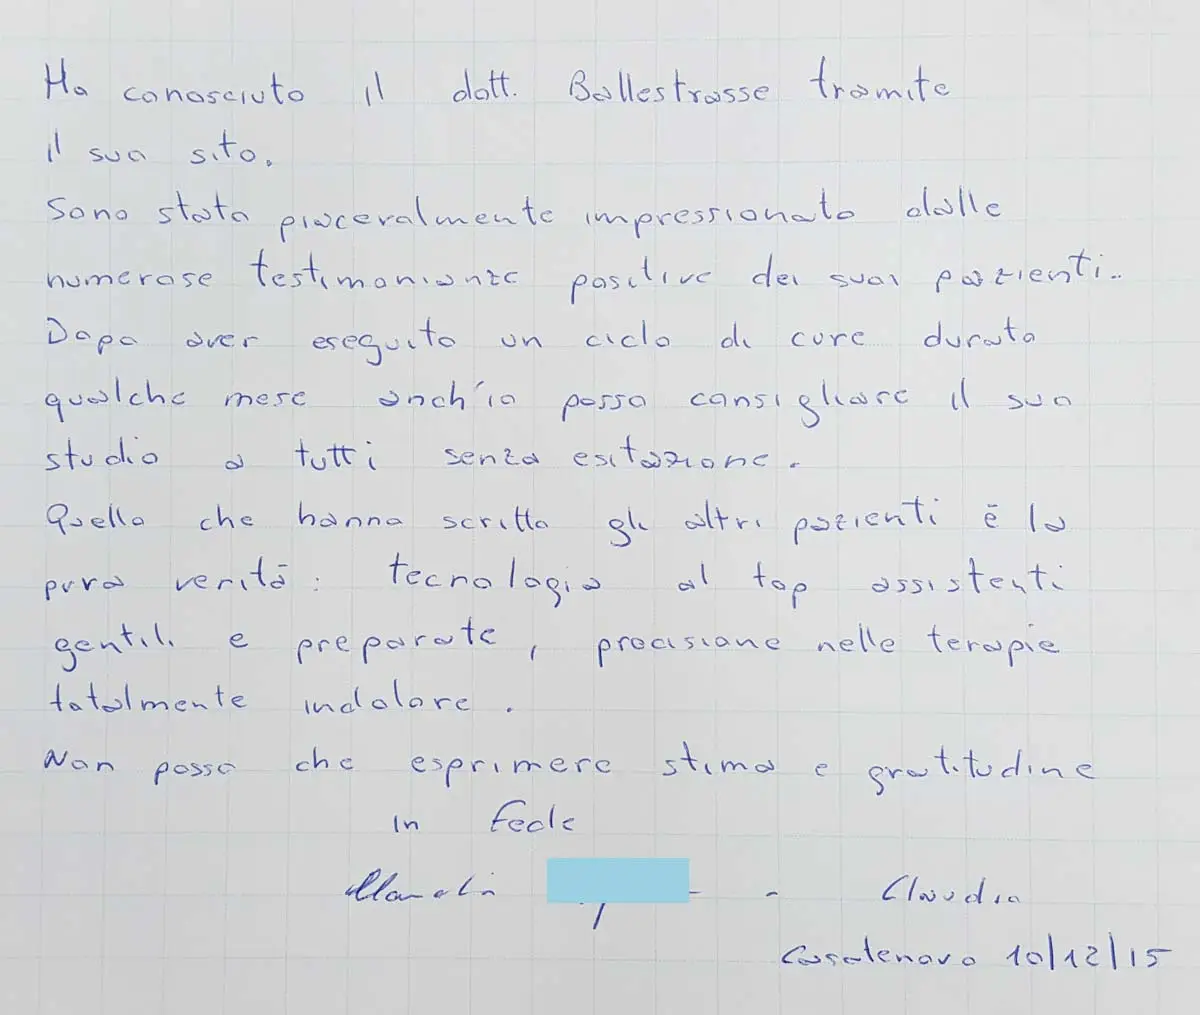 Ho conosciuto il dott. Ballestrasse tramite
il suo sito.
Sono stata piaceralmente impressionato dalle
numerose testimonianze positive dei suoi pazienti..
Dopo aver eseguito un ciclo di cure durato
qualche mese anch'io posso consigliare il suo
studio a tutti senza esitazione.
Quello che hanno scritto gli altri pazienti è la
pura verità: tecnologia al top assistenti
gentili e preparate, precisione nelle terapie
totalmente indolore.
Non posso che esprimere stima e gratitudine
In fede
- Claudia
Casatenovo 10/12/15